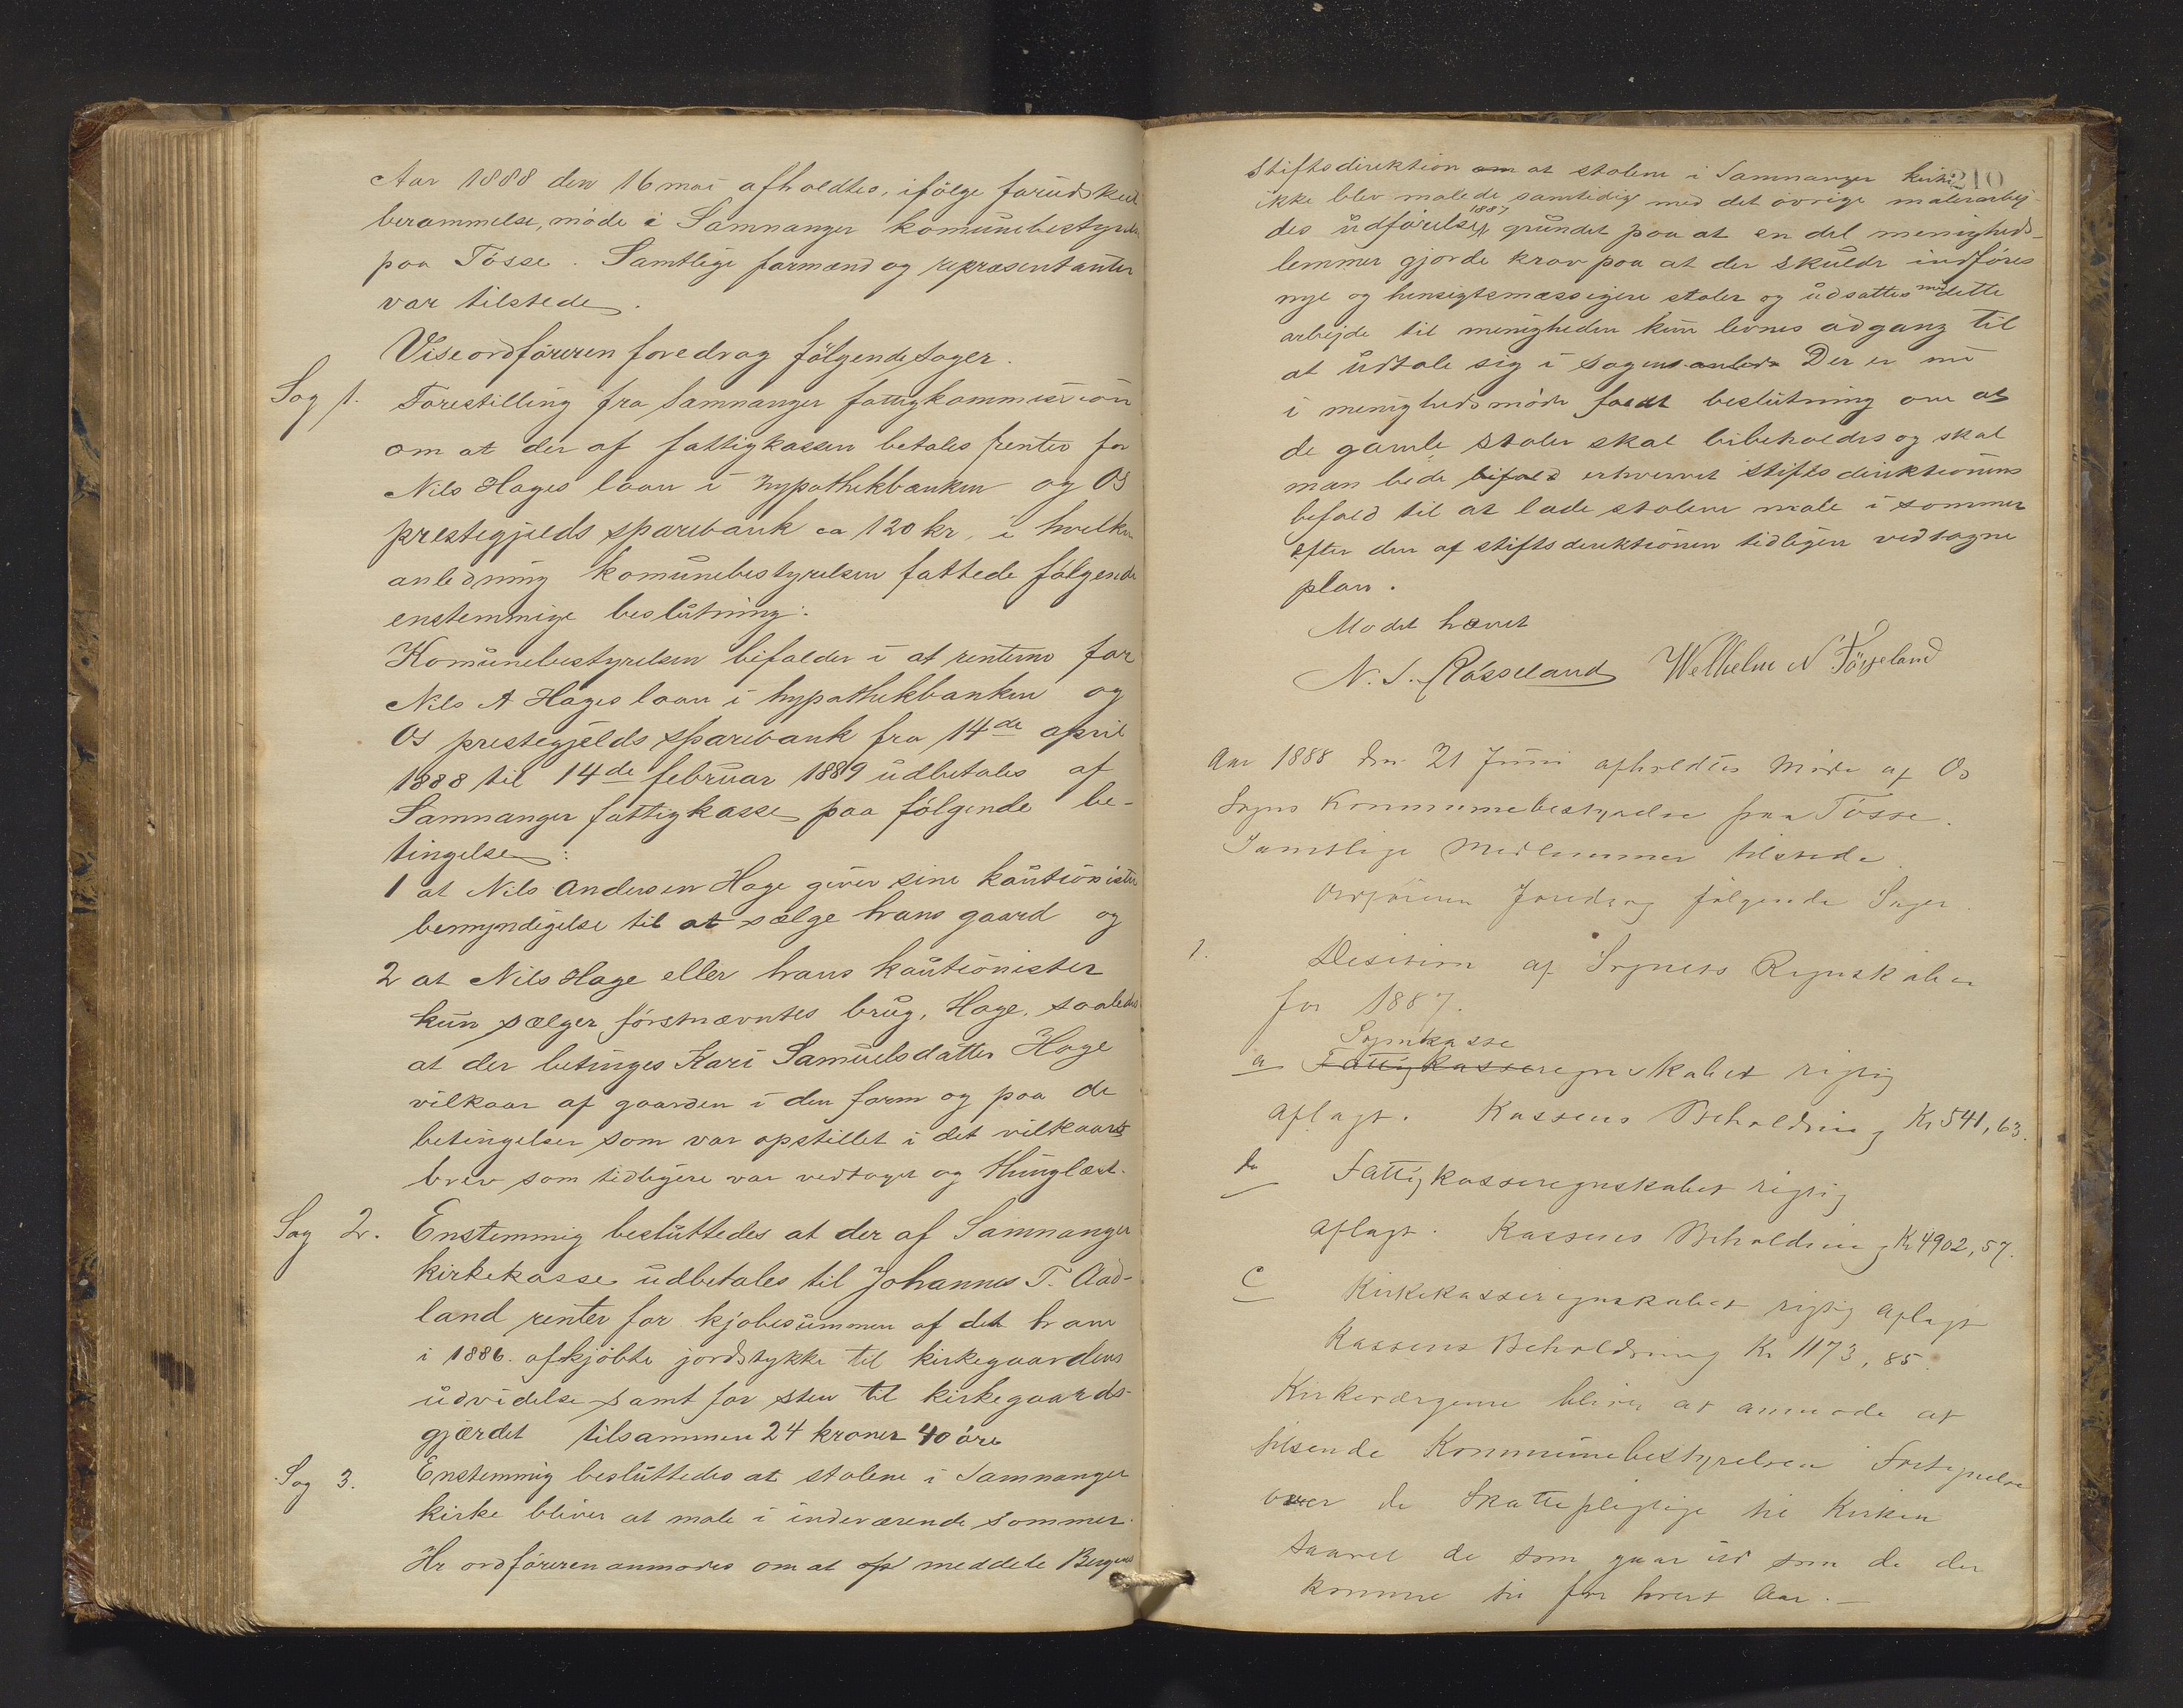 Aar 1888 den 16 mai afholdtes, ifölge forudskeet
berammelse, möde i Samnanger komunebestyrelse
paa Tösse. Samtlige formænd og repræsentanter
var tilstede.
Viseordföreren foredrog fölgende sager.
Sag 1. Forestilling fra Samnanger fattigkommission
om at der af fattigkassen betales renter for
Nils Hages laan i hypothekbanken og Os
prestegjelds sparebank ca 120 kr, i hvilken
anledning komunebestyrelsen fattede fölgende
enstemmige beslutning:
Komunebestyrelsen bifalder i at renterne for
Nils A Hages laan i hypothekbanken og
Os prestegjelds sparebank fra 14de april
1888 til 14de februar 1889 udbetales af
Samnanger fattigkasse paa fölgende be-
tingelse:
1 at Nils Andersen Hage giver sine kautionister
bemyndigelse til at sælge hans gaard og
2 at Nils Hage eller hans kautionister
kun sælger förstnævntes brug, Hage, saaledes
at der betinges Kari Samuelsdatter Hage
vilkaar af gaarden i den form og paa de
betingelser som var opstillet i det vilkaars
brev som tidligere var vedtaget og thinglæst.
Sag 2. Enstemmig besluttedes at der af Samnanger
kirkekasse udbetales til Johannes T. Aad-
land renter for kjöbesummen af det ham
i 1886. afkjöbte jordstykke til kirkegaardens
udvidelse samt for sten til kirkegaards-
gjærdet tilsammen 24 kroner 40 öre
Sag 3. Enstemmig besluttedes at stolene i Samnanger
kirke bliver at male i indeværende sommer.
Hr ordföreren anmodes om at op meddele Bergens
210
Stiftsdirektion om at stolene i Samnanger kirke
ikke blev malede samtidig med det övrige malerarbej-
des udförelse 1887 grundet paa at en del menigheds-
lemmer gjorde krav paa at der skulde indföres
nye og hensigtsmæssigere stoler og udsattes med dette
arbejde til menigheden kun levnes adgang til
at udtale sig i sagens Der er nu
i menighedsmöde faaet beslutning om at
de gamle stoler skal bibeholdes og skal
man bede bifald erhvervet stiftsdirektionens
bifald til at lade stolene male i sommer
efter den af stiftsdirektionen tidligere vedtagne
plan.
Mödet hævet
N. J. Rösseland Wilhelm N Tösseland
Aar 1888 den 21 Juni afholdtes Möde af Os
Sogns Kommunebestyrelse paa Tösse.
Samtlige Medlemmer tilstede.
Ordföreren foredrog fölgende Sager.
1. Desision af Sognets Regnskaber
for 1887.
Sognekasse
a Fattigkasseregnskabet rigtig
aflagt. Kassens Beholdning Kr 541,63.
b Fattigkasseregnskabet rigtig
aflagt. Kassens Beholdning Kr 4902,57.
c Kirkekasseregnskabet rigtig aflagt
Kassens Beholdning Kr 1173,85.
Kirkeværgerne bliver at anmode at
tilsende Kommunebestyrelsen Fortegnelse
over de Skattepligtige til Kirken
saavel de som gaar ud som de der
komme til for hvert Aar.—